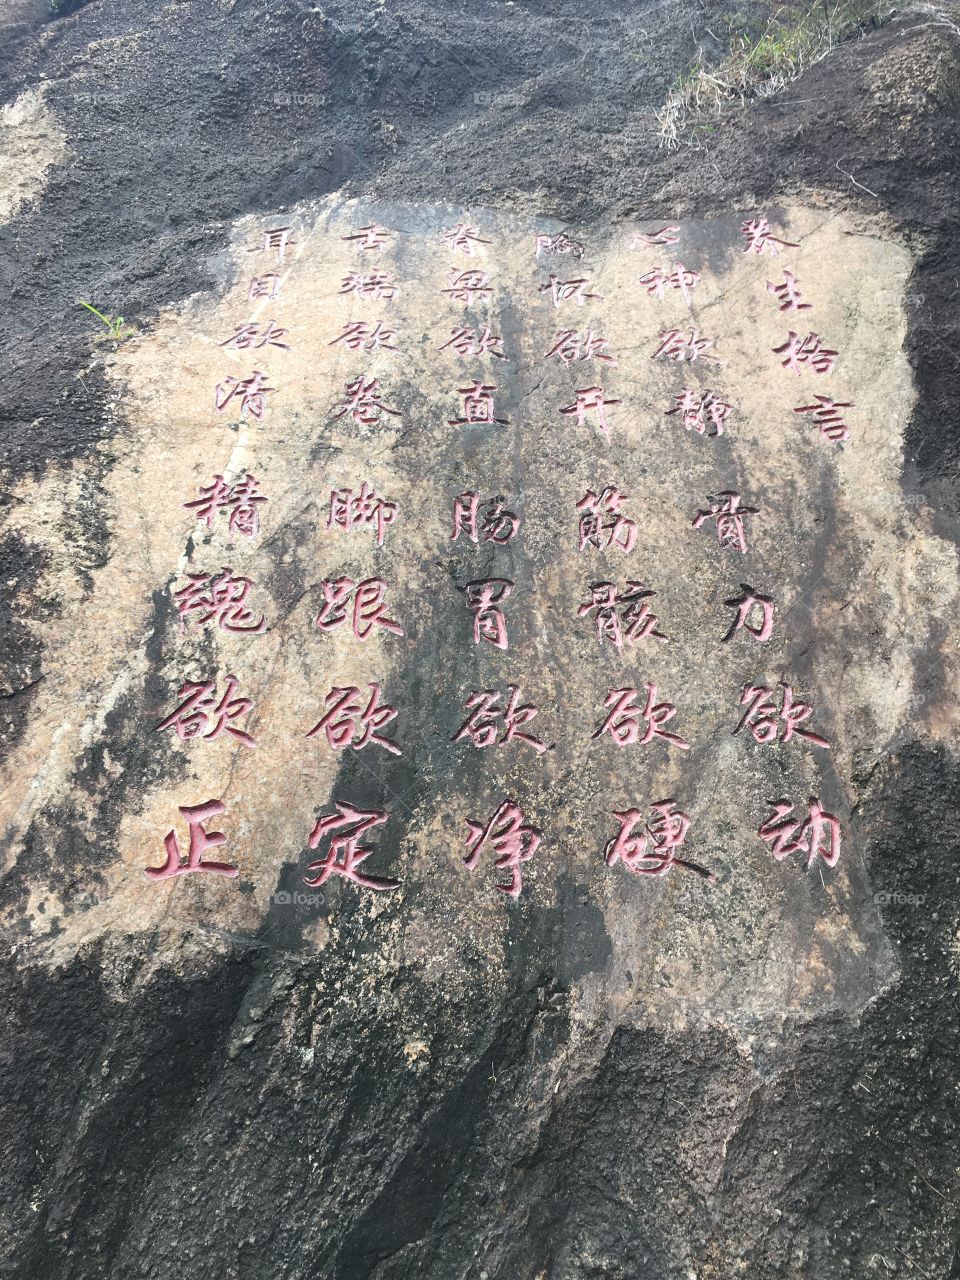 养生格言
心神欲静 骨力欲动
胸怀欲开 筋骸欲硬
脊梁欲直 肠胃欲净
舌端欲卷 脚跟欲定
耳目欲清 精魂欲正
foap